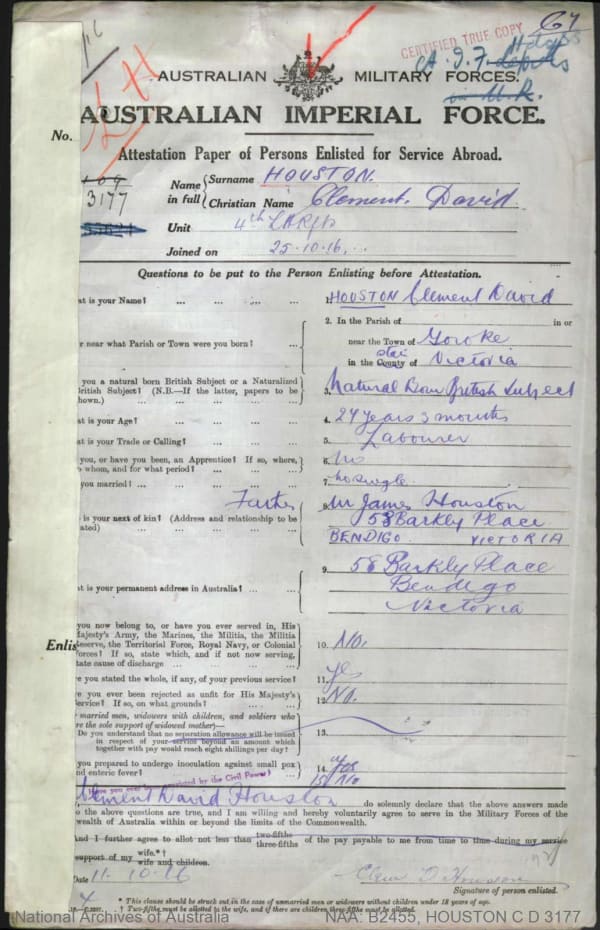 CERTIFIED TRUE COPY
A.I.F.
AUSTRALIAN MILITARY FORCES.
AUSTRALIAN IMPERIAL FORCE.
No.
Attestation Paper of Persons Enlisted for Service Abroad.
3177
Name in full
Surname HOUSTON.
Christian Name Clement David
Unit 4th
Joined on 25.10.16.
Questions to be put to the Person Enlisting before Attestation.
at is your Name? ... 1. HOUSTON Clement David
2. In the Parish of in or
r near what Parish or Town were you born? ... near the Town of Goroke
in the County of Victoria
you a natural born British Subject or a Naturalized
British Subject? (N.B.—If the latter, papers to be
shown.) ... 3. Natural Born British Subject
at is your Age? ... 4. 24 years 3 months
at is your Trade or Calling? ... 5. Labourer
you, or have you been, an Apprentice? If so, where,
whom, and for what period? ... 6. no
you married? ... 7. no single
Father 8. Mr James Houston
is your next of kin? (Address and relationship to be
ated) ... 58 Barkly Place
BENDIGO VICTORIA
at is your permanent address in Australia? ... 9. 58 Barkly Place
Bendigo
Victoria
you now belong to, or have you ever served in, His
Majesty's Army, the Marines, the Militia, the Militia
Reserve, the Territorial Force, Royal Navy, or Colonial
Forces? If so, state which, and if not now serving,
tate cause of discharge ... 10. No.
Enlis
e you stated the whole, if any, of your previous service? 11. yes
e you ever been rejected as unfit for His Majesty's
Service? If so, on what grounds? ... 12. No.
married men, widowers with children, and soldiers who
re the sole support of widowed mother)—
Do you understand that no separation allowance will be issued
in respect of your service beyond an amount which
together with pay would reach eight shillings per day? 13.
you prepared to undergo inoculation against small pox
nd enteric fever? ... 14. yes
Have you ever been convicted by the Civil Power? 15 No
Clement David Houston do solemnly declare that the above answers made
o the above questions are true, and I am willing and hereby voluntarily agree to serve in the Military Forces of the
wealth of Australia within or beyond the limits of the Commonwealth.
And I further agree to allot not less than two-fifths three-fifths of the pay payable to me from time to time during my service
support of my wife.*† wife and children.
Date 11.10.16 Clem D Houston
Signature of person enlisted.
* This clause should be struck out in the case of unmarried men or widowers without children under 18 years of age.
† Two-fifths must be allotted to the wife, and if there are children three-fifths must be allotted.
National Archives of Australia NAA: B2455, HOUSTON C D 3177